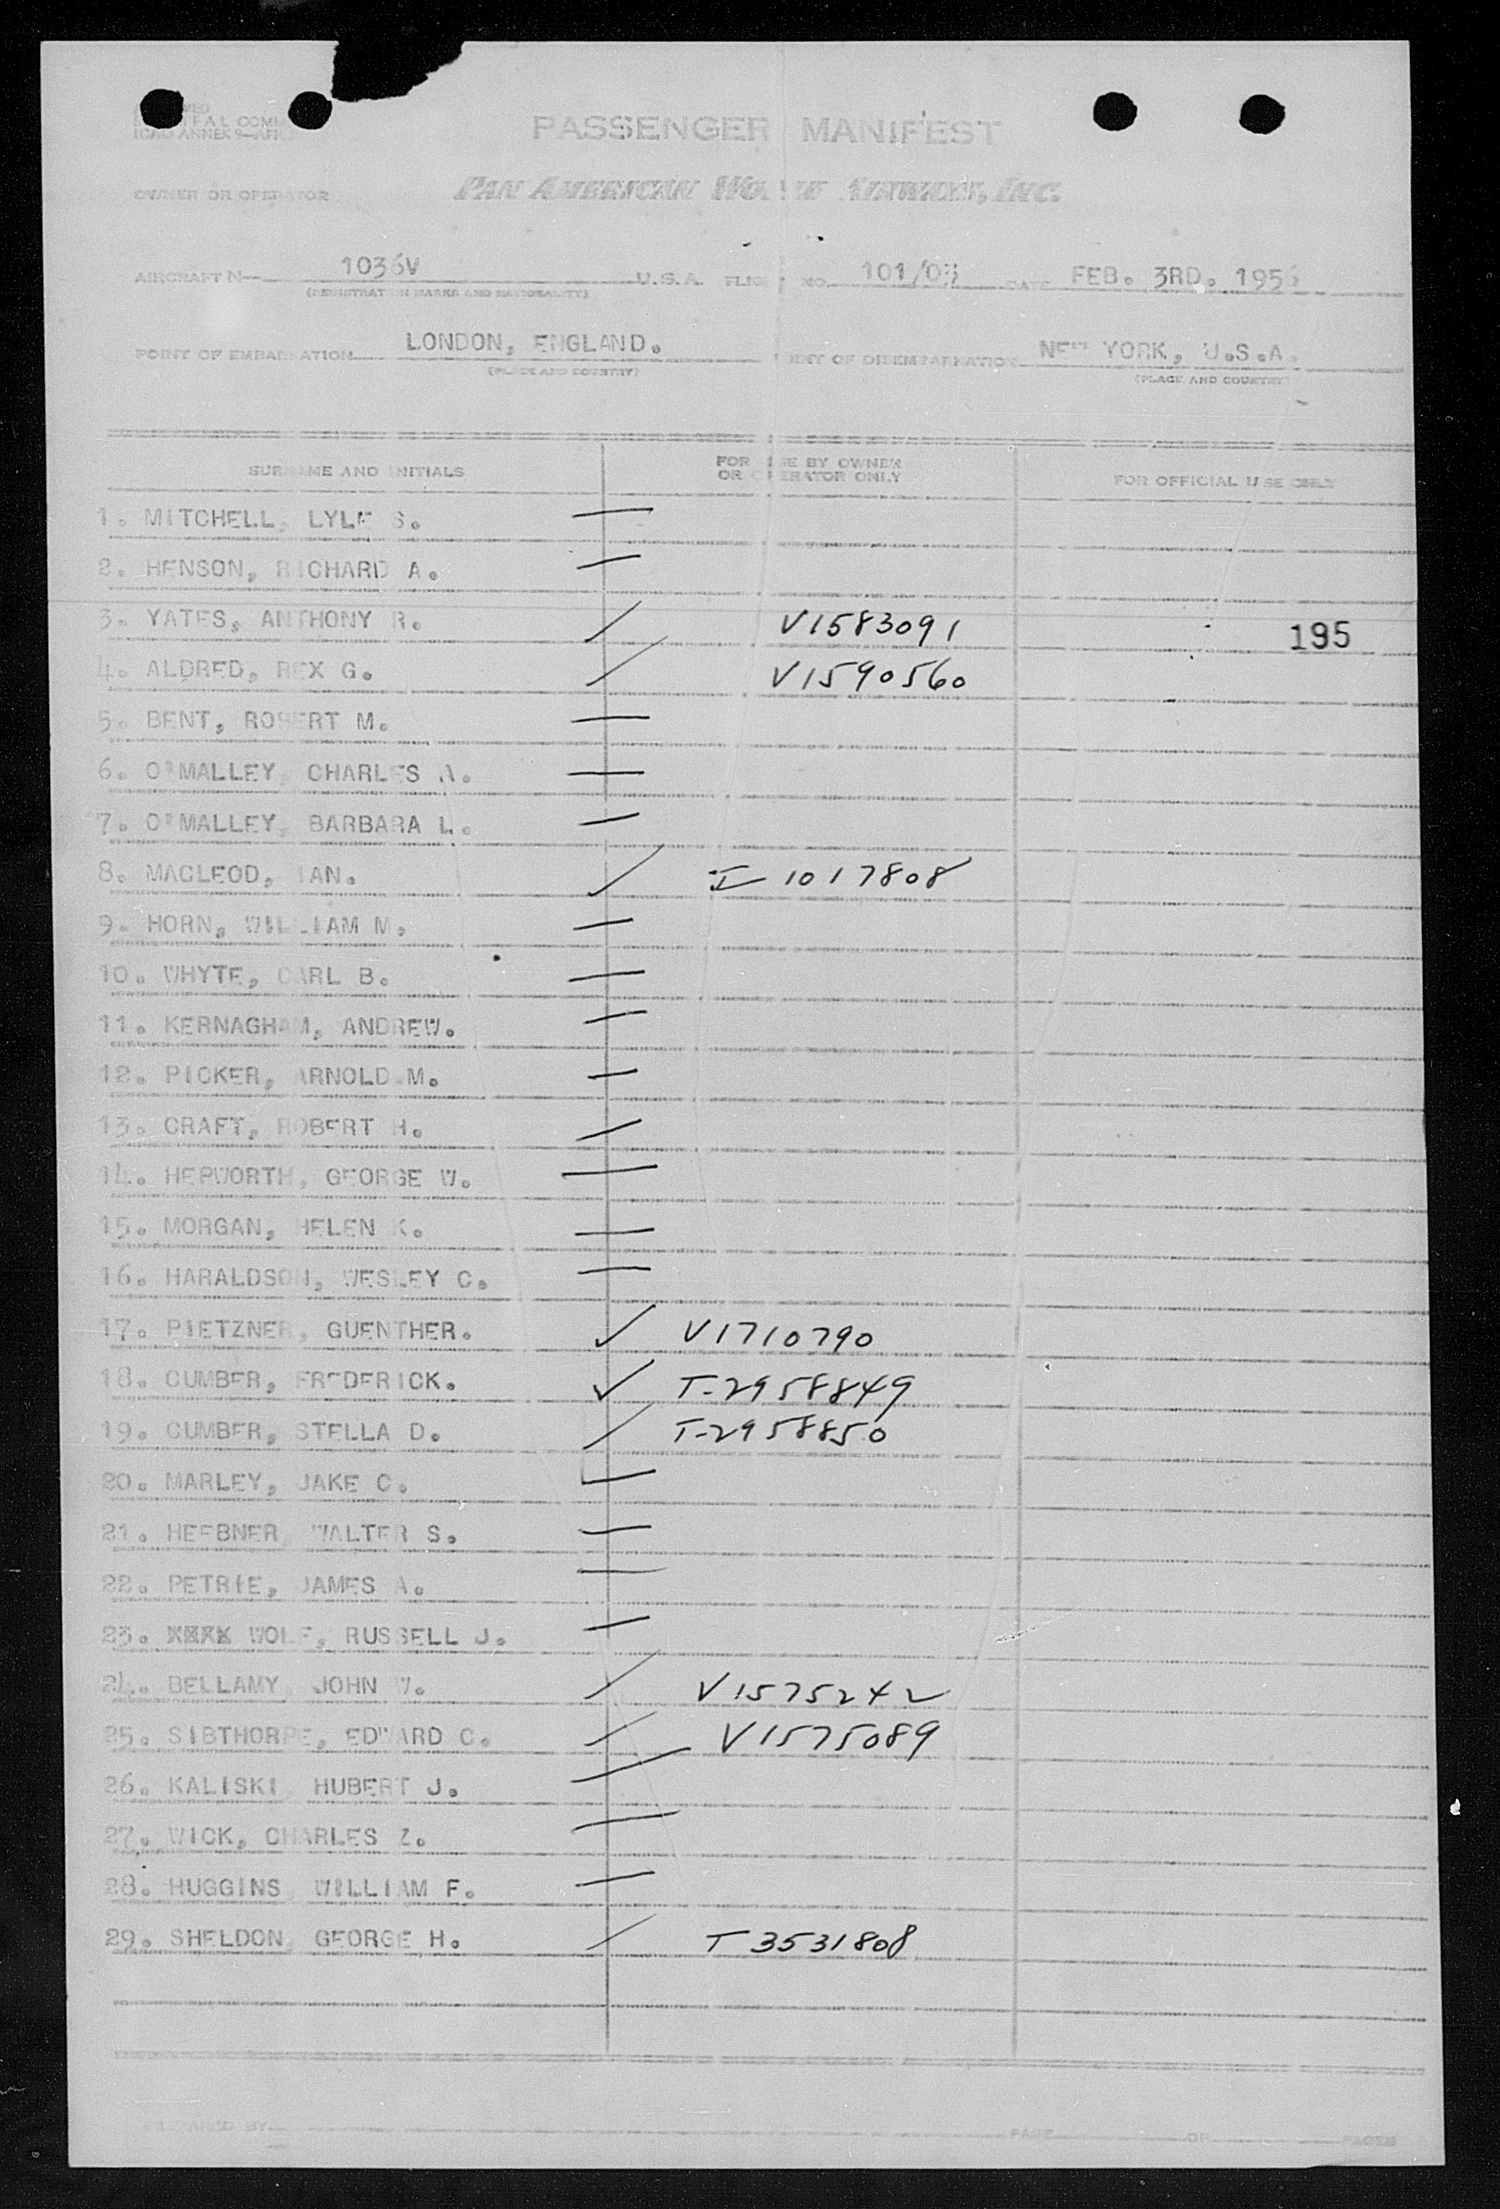 PASSENGER MANIFEST
OWNER OR OPERATOR PAN AMERICAN WORLD AIRWAYS, INC.
AIRCRAFT N 1036V U.S.A. FLIGHT NO. 101/03 DATE FEB. 3RD. 1956
(REGISTRATION MARKS AND NATIONALITY)
POINT OF EMBARKATION LONDON, ENGLAND. POINT OF DISEMBARKATION NEW YORK, U.S.A.
(PLACE AND COUNTRY) (PLACE AND COUNTRY)
SURNAME AND INITIALS FOR USE BY OWNER OR OPERATOR ONLY FOR OFFICIAL USE ONLY
1. MITCHELL, LYLE S. —
2. HENSON, RICHARD A. —
3. YATES, ANTHONY R. / V1583091 195
4. ALDRED, REX G. / V1590560
5. BENT, ROBERT M. —
6. O'MALLEY, CHARLES A. —
7. O'MALLEY, BARBARA L. —
8. MACLEOD, IAN. ✓ I-1017808
9. HORN, WILLIAM M. —
10. WHYTE, CARL B. —
11. KERNAGHAM, ANDREW. —
12. PICKER, ARNOLD M. —
13. CRAFT, ROBERT H. —
14. HEPWORTH, GEORGE W. —
15. MORGAN, HELEN K. —
16. HARALDSON, WESLEY C. —
17. PIETZNER, GUENTHER. ✓ V1710790
18. CUMBER, FREDERICK. ✓ T-2958849
19. CUMBER, STELLA D. / T-2958850
20. MARLEY, JAKE C. —
21. HEEBNER, WALTER S. —
22. PETRIE, JAMES A. —
23. WOLF, RUSSELL J. —
24. BELLAMY, JOHN W. / V1575242
25. SIBTHORPE, EDWARD C. / V1575089
26. KALISKI, HUBERT J. —
27. WICK, CHARLES Z. —
28. HUGGINS, WILLIAM F. —
29. SHELDON, GEORGE H. / T3531808
PREPARED BY PAGE OF PAGES